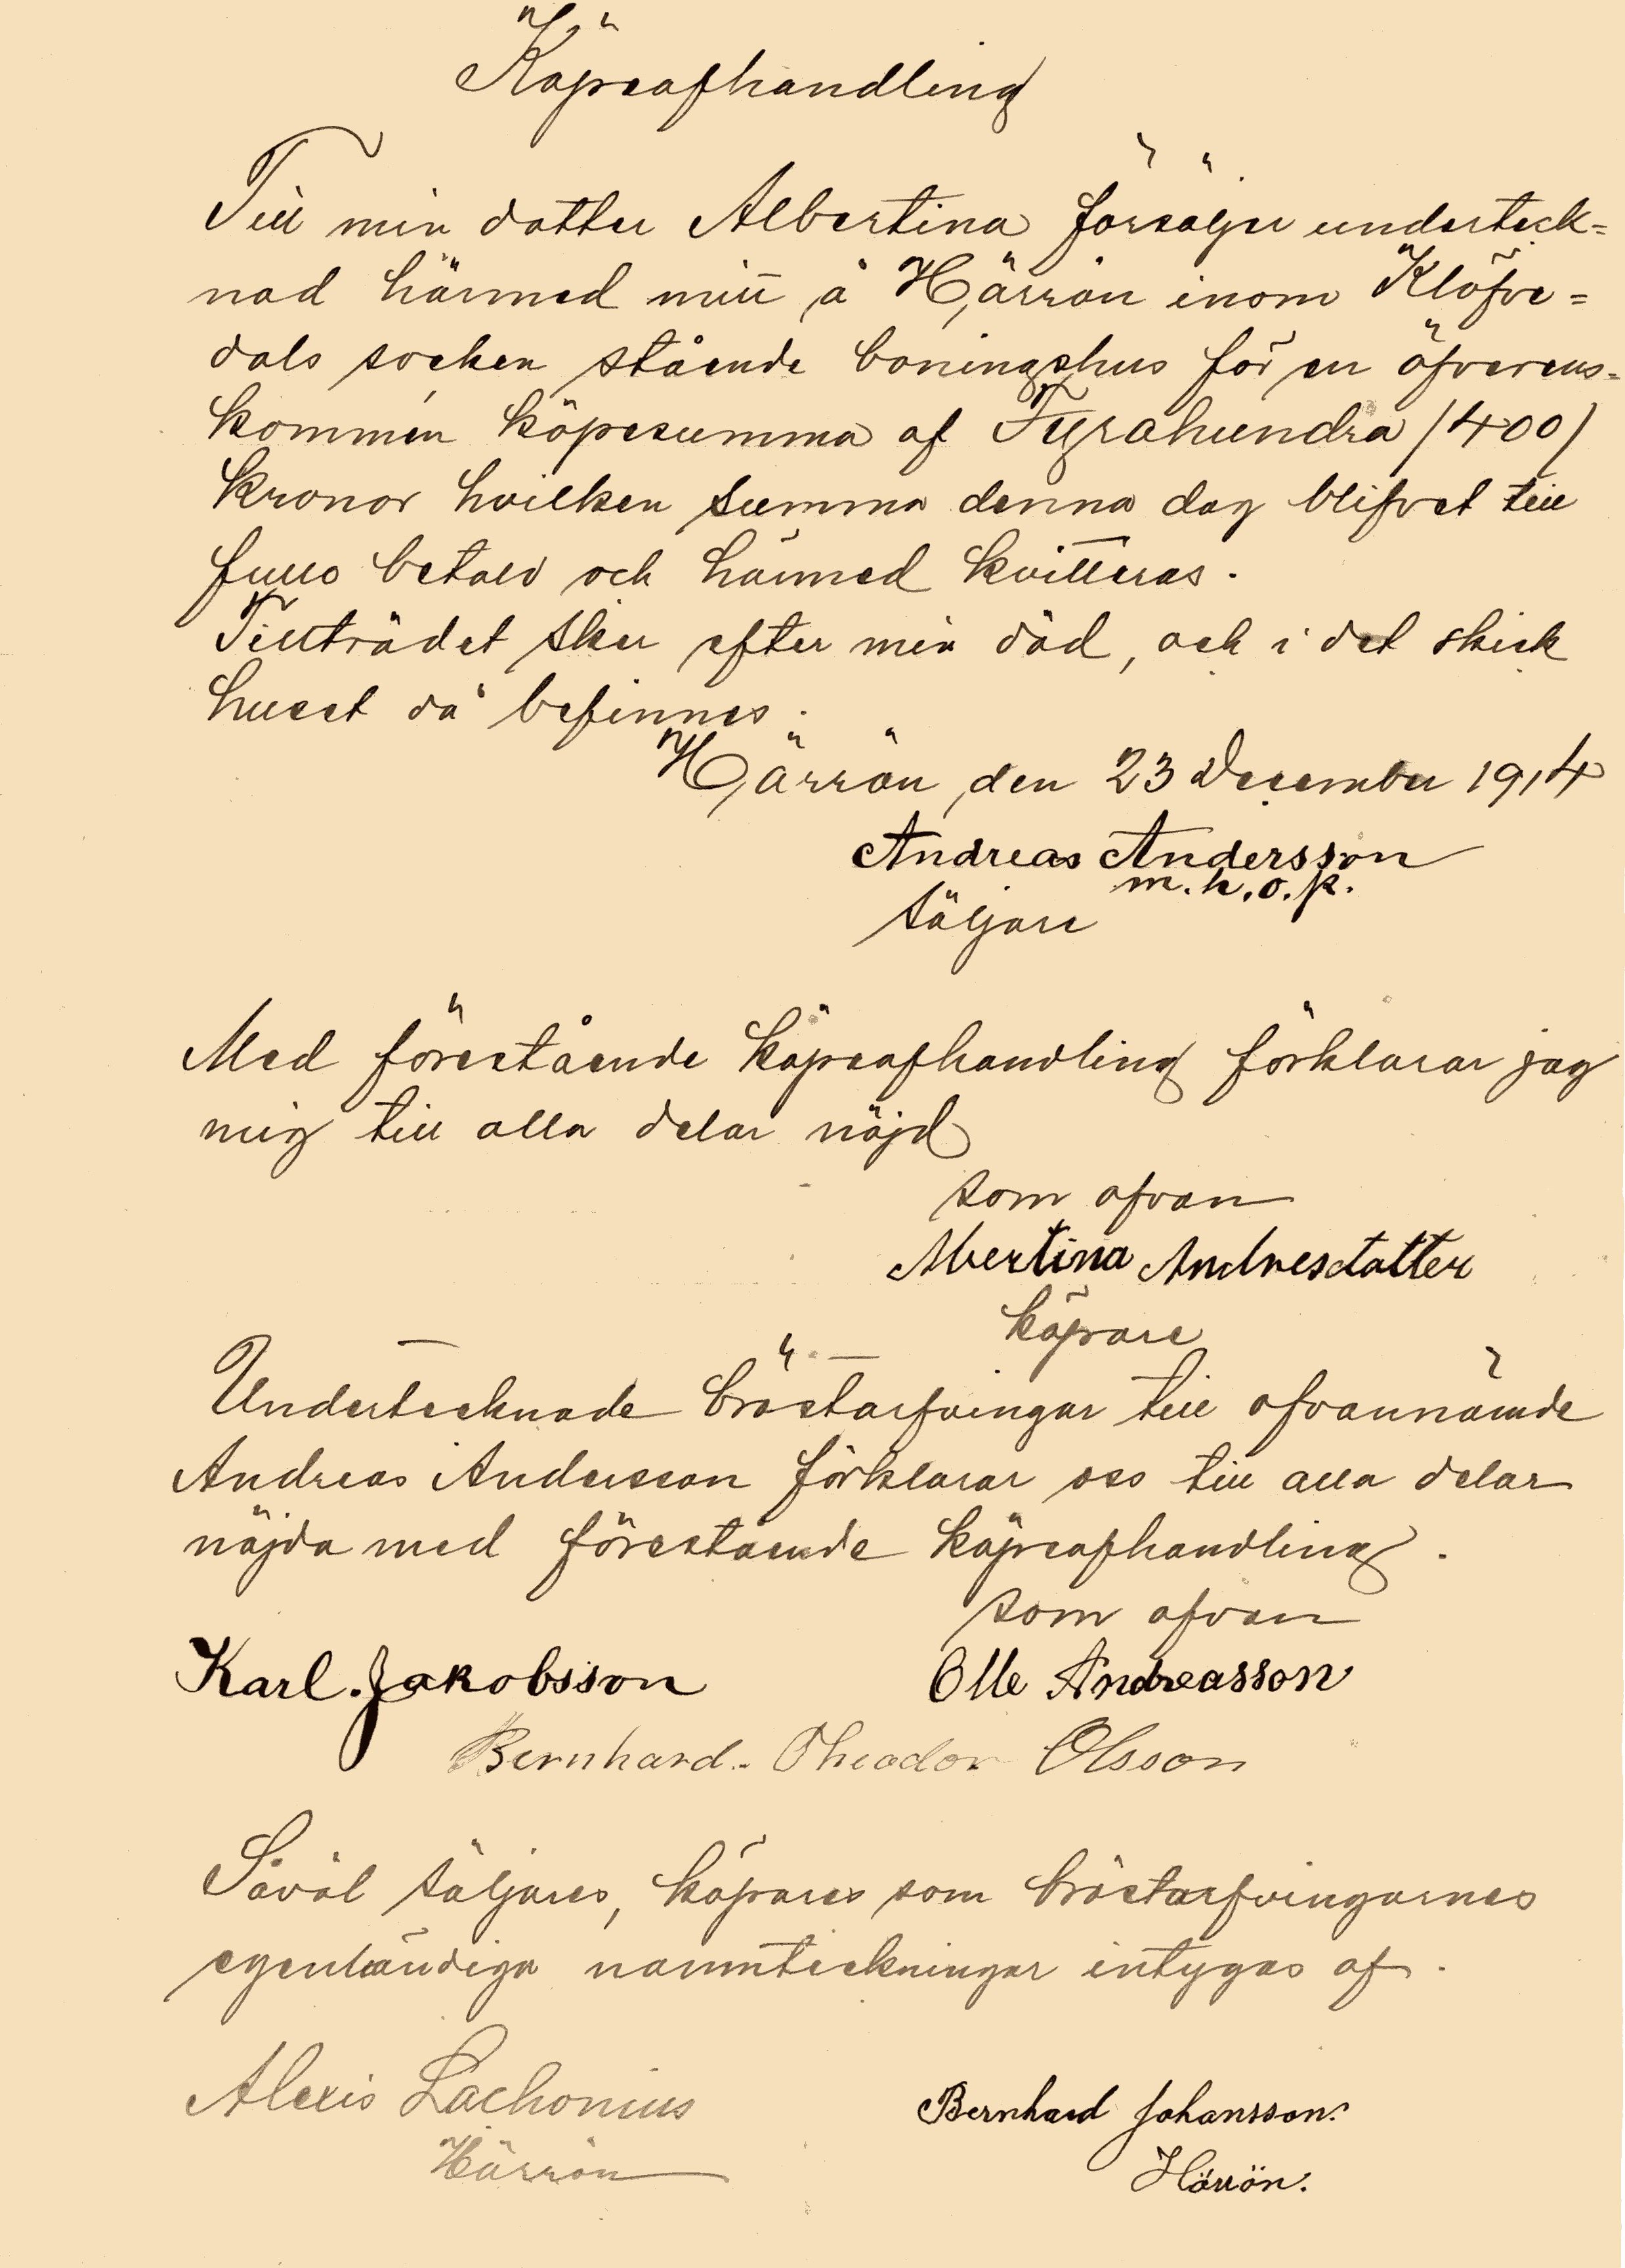 Köpeafhandling
Till min dotter Albertina försäljer underteck=
nad härmed mitt å Härrön inom Klöfve=
dals socken stående boningshus för en öfverens=
kommen köpesumma af Fyrahundra (400)
kronor hvilken summa denna dag blifvet till
fullo betald och härmed kvitteras.
Tillträdet sker efter min död, och i det skick
huset då befinnes.
Härrön den 23 December 1914
Andreas Andersson
m.h.o.p.
säljare
Med förestående köpeafhandling förklarar jag
mig till alla delar nöjd
som ofvan
Albertina Andresdatter
köpare
Undertecknade bröstarfvingar till ofvannämde
Andreas Andersson förklarar oss till alla delar
nöjda med förestående köpeafhandling.
som ofvan
Karl. Jakobsson Olle Andreasson
Bernhard. Theodor Olsson
Såväl säljares, köpares som bröstarfvingarnes
egenhändiga namnteckningar intygas af.
Alexis Zachonius Bernhard Johansson.
Härrön Härrön.